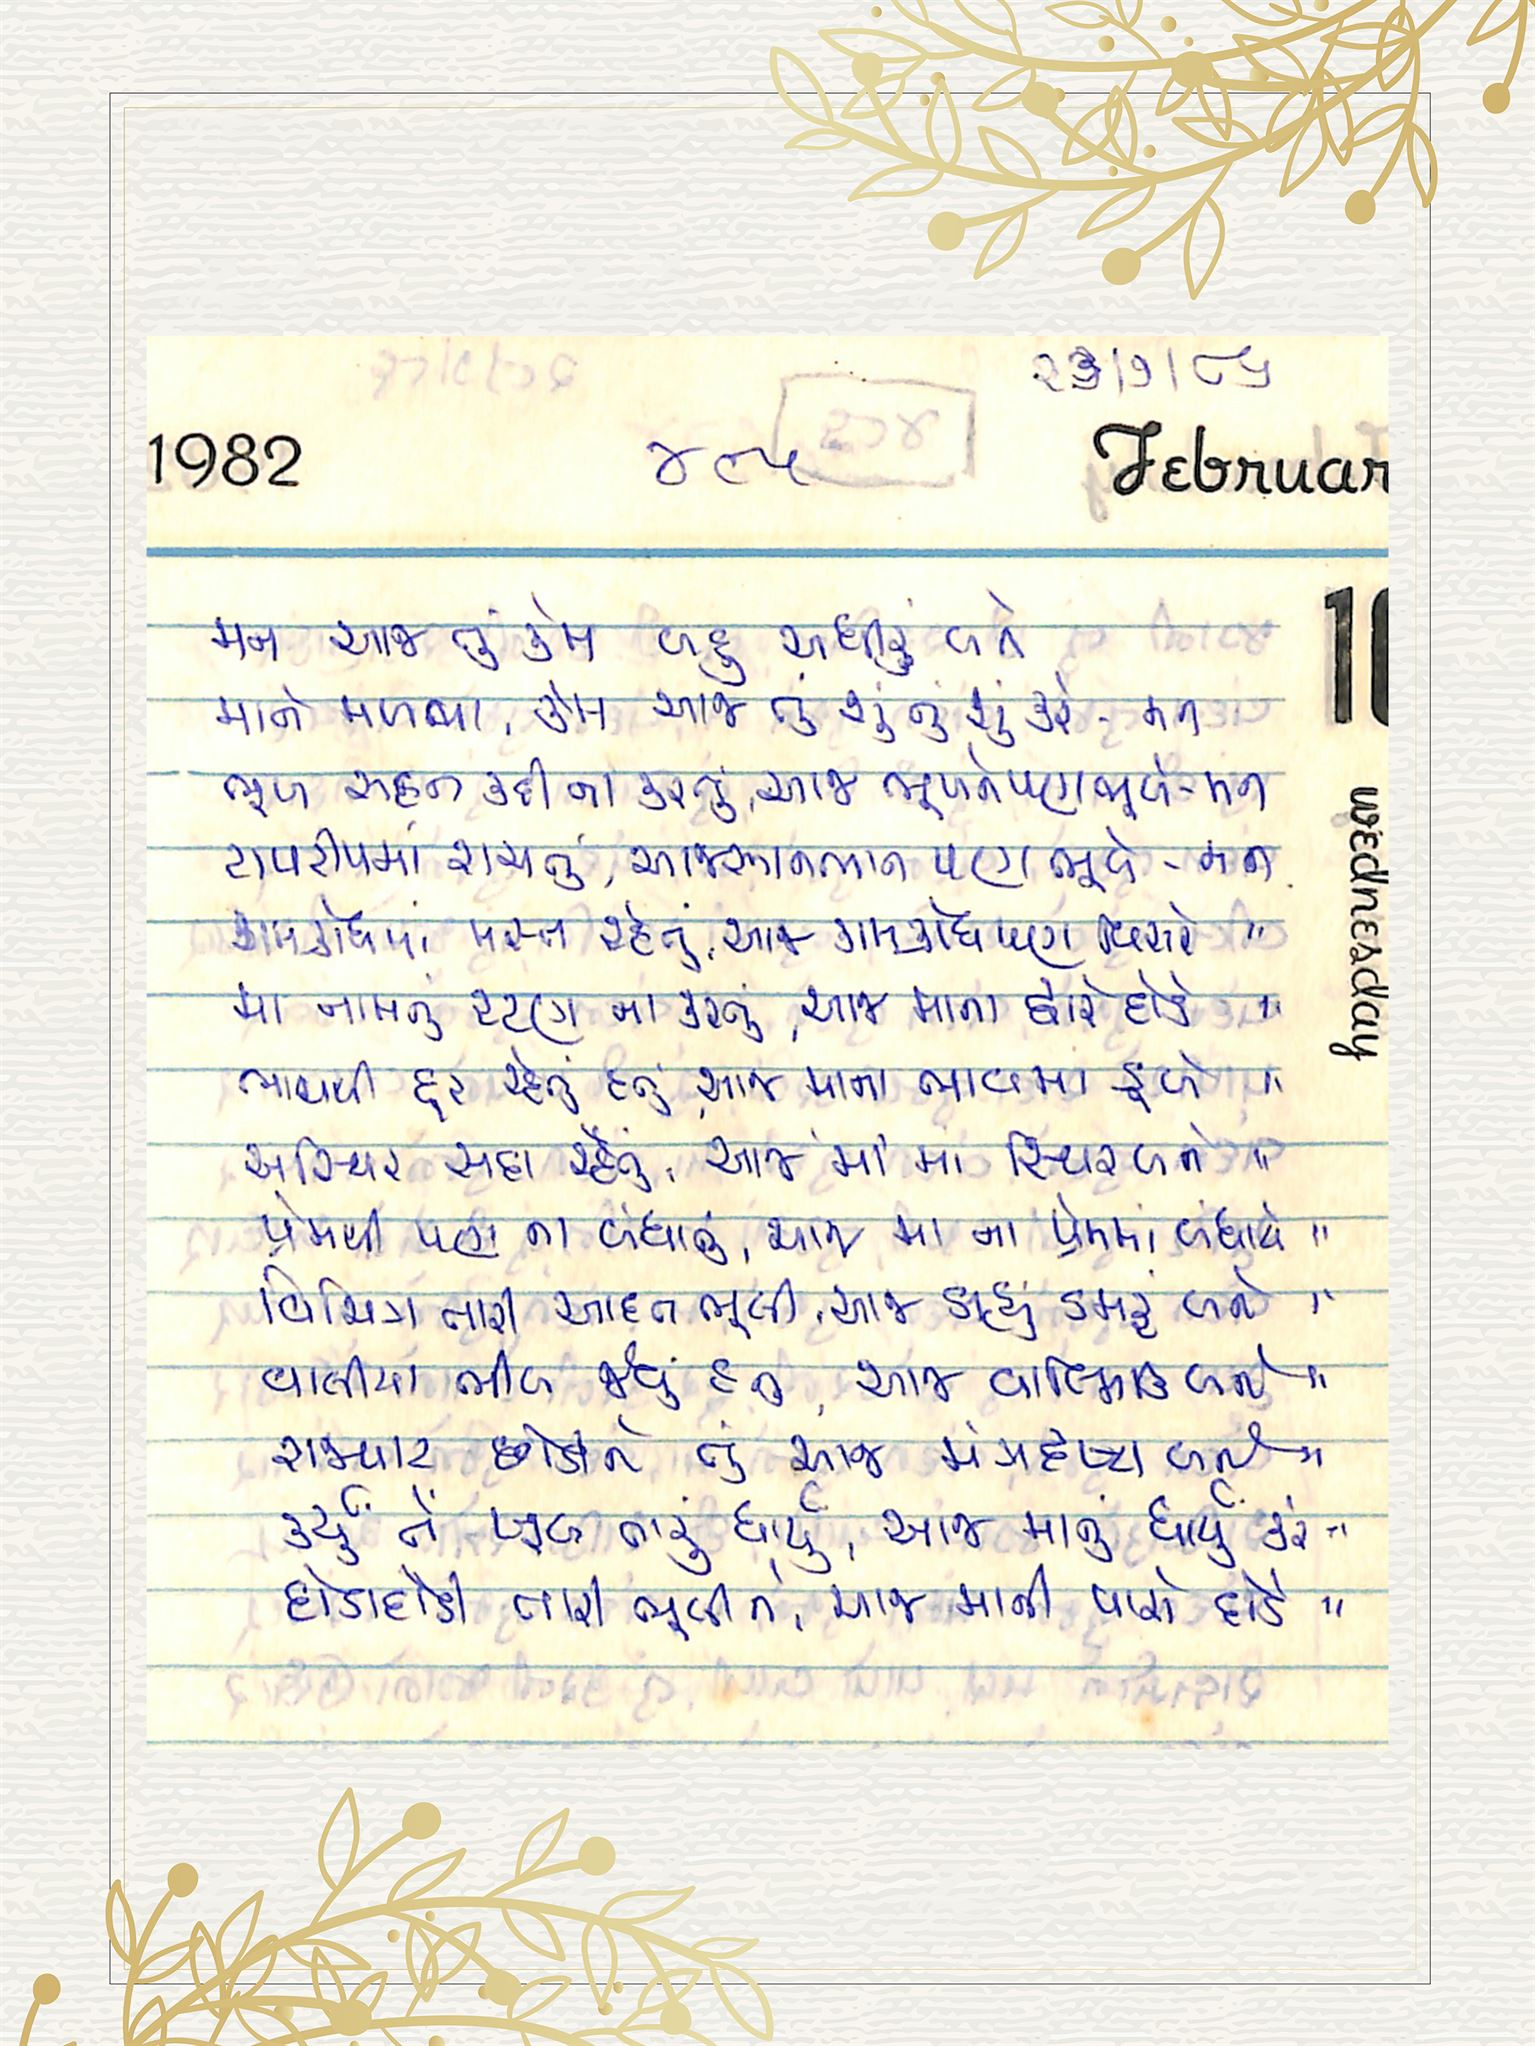 ૨૩/૭/૮૫
1982
૪૯૫
Februar
10
wednesday
મન આજ તું કેમ બહુ અધીરું બને
માને મળવા, કેમ આજ તું શું નું શું કરે - મન
ભૂખ સહન કદી ના કરતું, આજ ભૂખને પણ ભૂલે - મન
ટાપટીપમાં રાચતું, આજ ભાનભાન પણ ભૂલે - મન
કામક્રોધમાં મસ્ત રહેતું, આજ કામક્રોધ પણ વિસરે "
મા નામનું રટણ ના કરતું, આજ માના દ્વારે દોડે "
ભાવથી દૂર રહેતું હતું, આજ માના ભાવમાં ડૂબે "
અસ્થિર સદા રહેતું, આજ 'માં' માં સ્થિર બને "
પ્રેમથી પણ ના બંધાતું, આજ મા ના પ્રેમમાં બંધાયે "
વિચિત્ર તારી આદત ભૂલી, આજ ડાહ્યું ડમરું બને "
વાલીયા ભીલ જેવું હતું, આજ વાલ્મિકી બને "
રઘવાટ છોડીને તું આજ મંત્રદ્રષ્ટા બને "
કર્યું તેં ખૂબ તારું ધાર્યું, આજ માનું ધાર્યું કરે - "
દોડાદોડી તારી ભૂલીને, આજ માની પાસે દોડે "